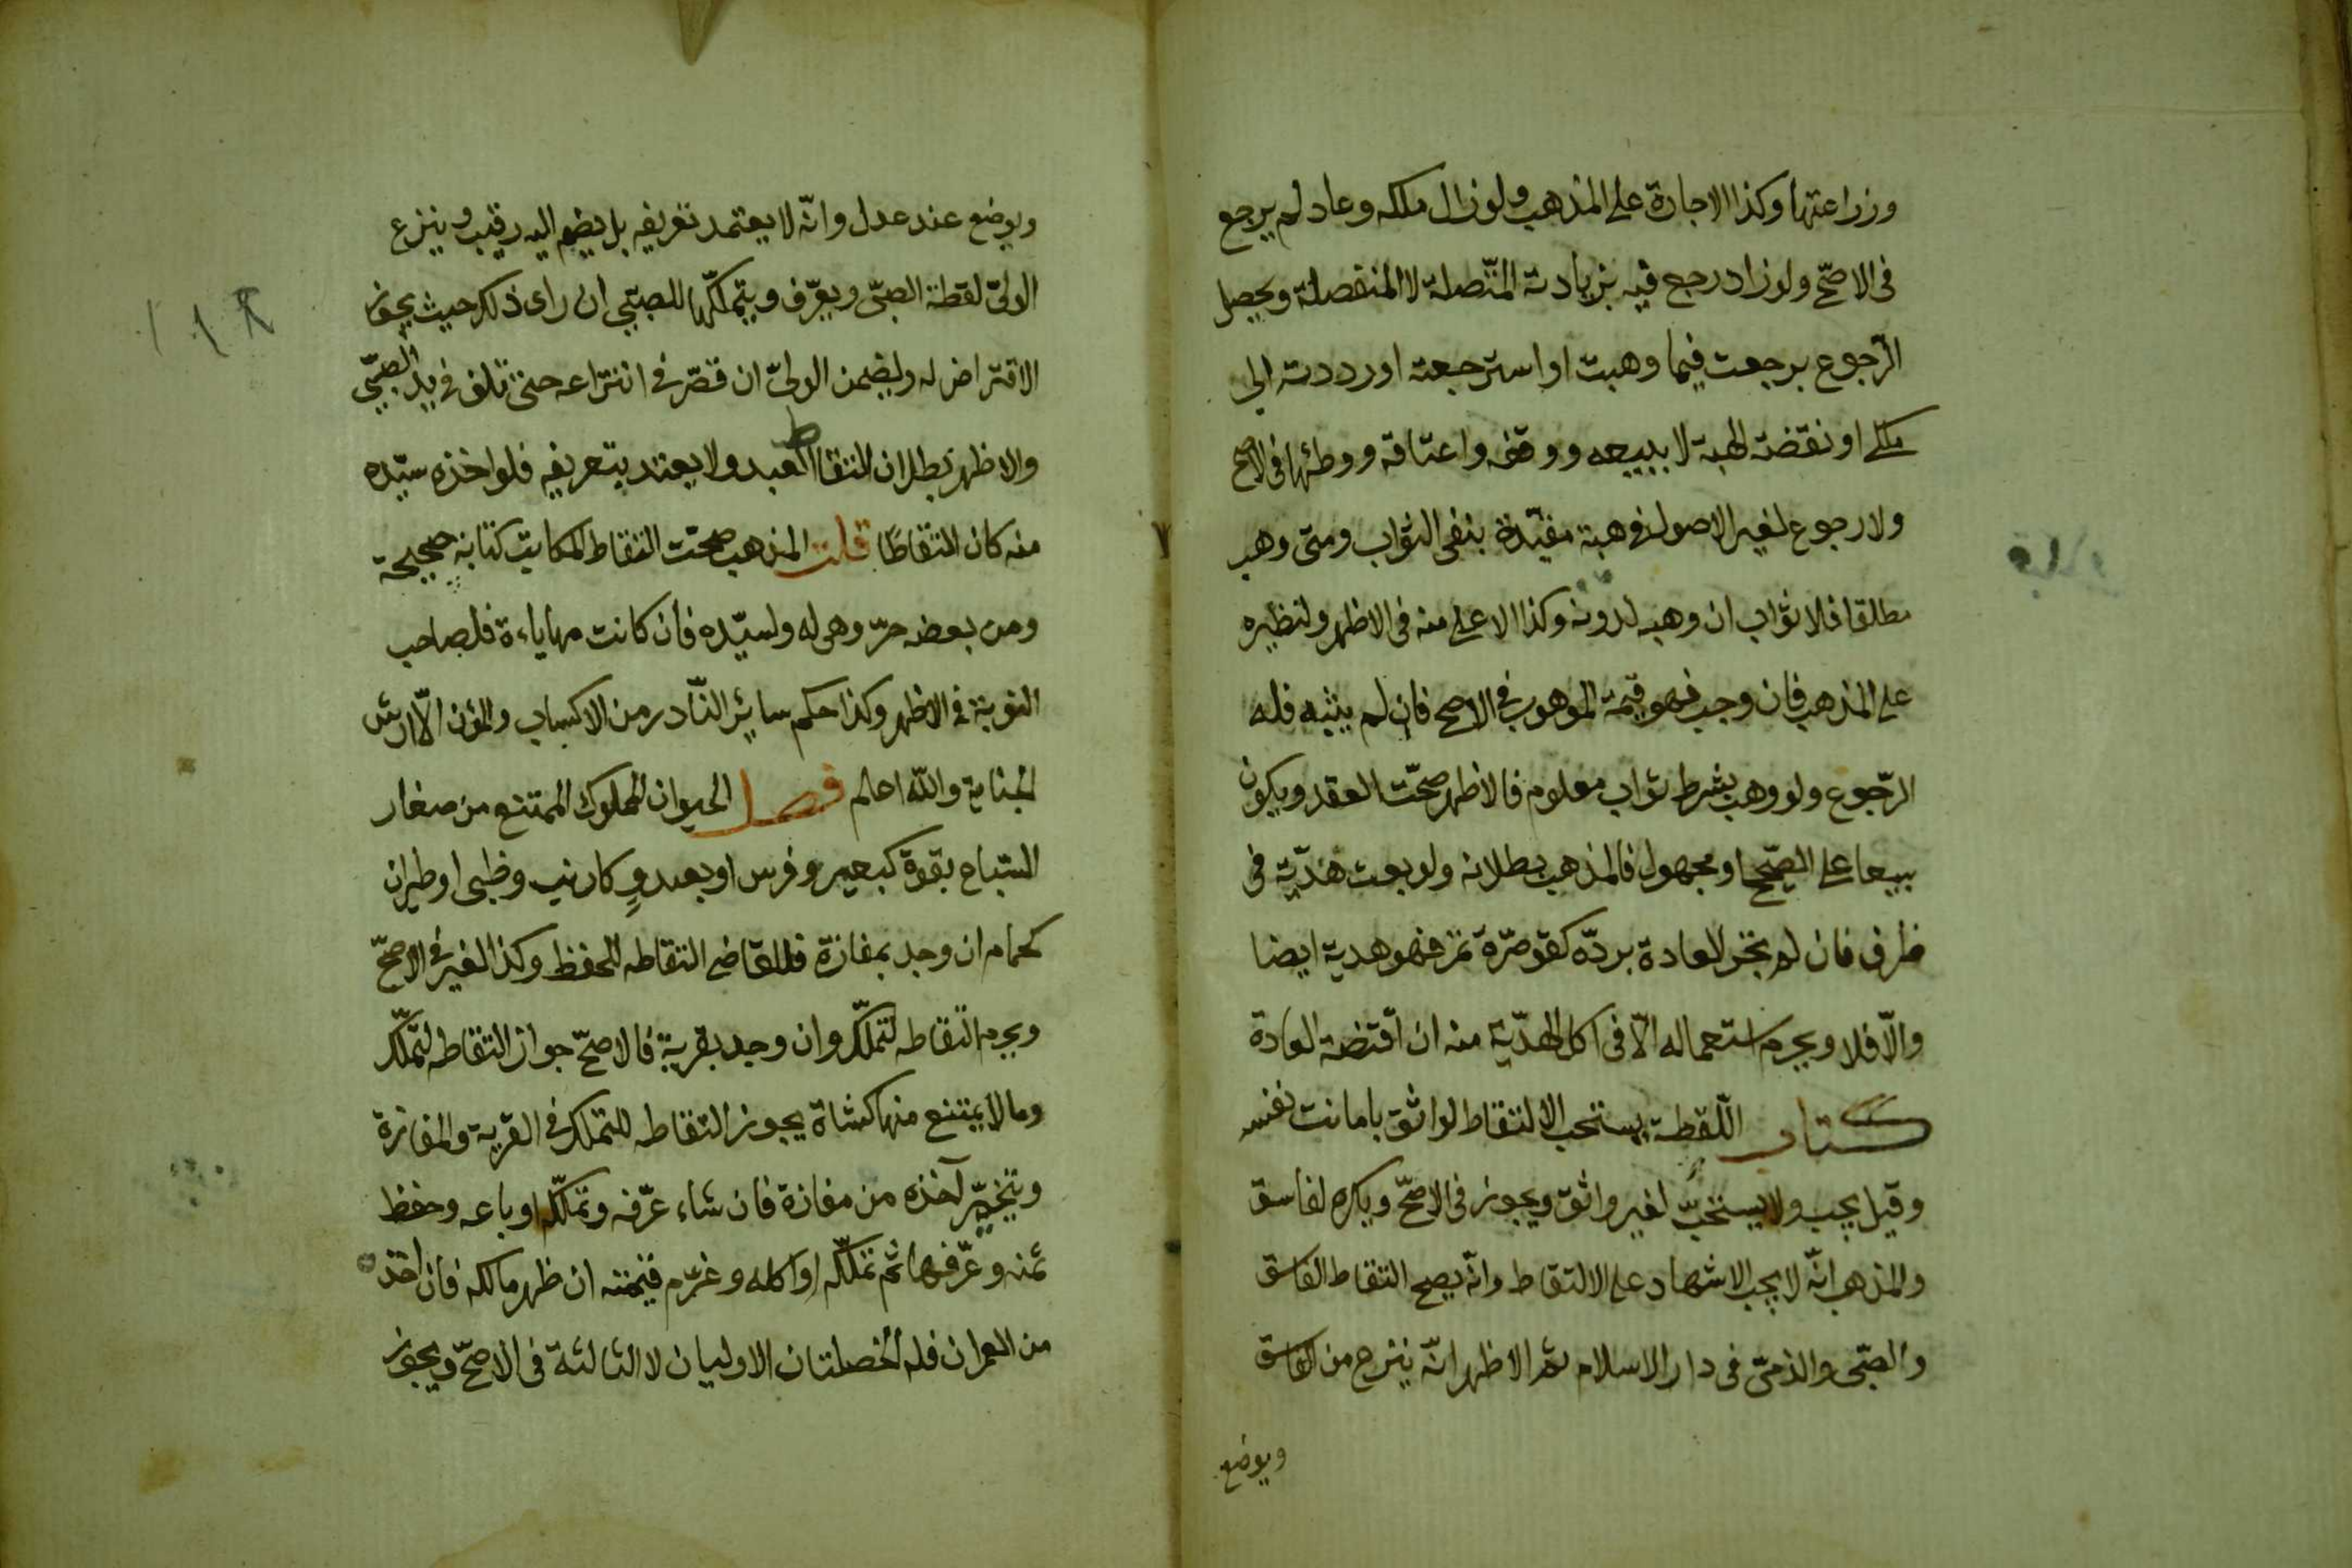 وزراعتها وكذا الاجارة على المذهب ولوزال ملكه وعاد لم يرجع
فى الاصحّ ولوزاد رجع فيه بزيادته المتّصلة لا المنفصلة ويحصل
الرّجوع برجعت فيما وهبت او استرجعته اورددته الى
ملكى او نقضت الهبة لا ببيعه ووقفه واعتاقه ووطئها فى الاصح
ولا رجوع لغير الاصول فى هبة مقيّدة بنفى الثواب ومتى وهب
مطلقا فلا ثواب ان وهب لدونه وكذا الاعلى منه فى الاظهر ولنظيره
على المذهب فان وجب فهو قيمة الموهوب فى الاصح فان لم يثبه فله
الرّجوع ولو وهب بشرط ثواب معلوم فالاظهر صحّت العقد ويكون
بيعا على الصّحيح او مجهول فالمذهب بطلانه ولو بعث هدّية فى
ظرف فان لم تجر العادة بردّه كقوصرّة تمر فهو هدية ايضا
والّا فلا ويحرم استعماله الّا فى اكل الهدّية منه ان اقتضته العادة
كتاب اللّقطة يستحب الالتقاط لواثق بامانت نفسه
وقيل يجب ولا يستحبّ لغير واثق ويجوز فى الاصحّ ويكره لفاسق
والمذهب انّه لا يجب الاشهاد على الالتقاط وانّه يصح التقاط الفاسق
والصّبى والذمىّ فى دار الاسلام ثم الاظهر انّه ينزع من الفاسق
ويوضع
ويوضع عند عدل وانّه لا يعتمد تعريفه بل يضم اليه رقيب وينزع
الولىّ لقطة الصبّى ويعرّف ويتملكّها للصبّى ان راى ذلك حيث يجوز
الاقتراض له ويضمن الولىّ ان قصّر فى انتزاعه حتى تلف فى يد الصبّى
والاظهر بطلان التقاط العبد ولا يعتد بتعريفه فلو اخذه سيّده
منه كان التقاطًا قلت المذهب صحّت التقاط المكاتب كتابة صحيحة
ومن بعضه حرّ وهى له ولسيّده فان كانت مهاياءة فلصاحب
النوبة فى الاظهر وكذا حكم سائر النّادر من الاكساب والمؤن الّا ارش
الجناية واللّه اعلم فصل الحيوان المملوك الممتنع من صغار
السّباع بقوة كبعير وفرس او بعدوٍ كارنب وظبى او طيران
كحمام ان وجد بمفازة فللقاضى التقاطه للحفظ وكذا لغيره فى الاصحّ
ويحرم التقاطه لتملّك وان وجد بقرية فالاصحّ جواز التقاطه لتملّك
وما لا يمتنع منها كشاة يجوز التقاطه للتملك فى القرية والمفازة
ويتخيّر آخذه من مفازة فان شاء عرّفه وتملّكه او باعه وحفظ
ثمنه وعرّفها ثم تملّكه او اكله وغرّم قيمته ان ظهر مالكه فان اخذ
من العمران فله الخصلتان الاوليان لا الثالثة فى الاصحّ ويجوز